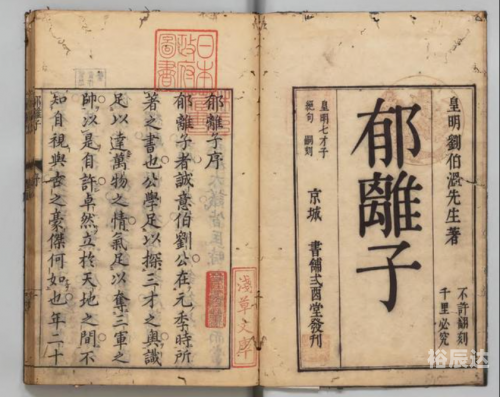 皇明劉伯溫先生著
郁離子
不許翻刻
千里必究
皇明七才子
絕句 嗣刻
京城 書鋪弍酉堂發刊
日本
政府
圖書
淺草文庫
郁離子序
郁離子者誠意伯劉公在元季時所
著之書也公學足以探三才之奧識
足以達萬物之情氣足以奪三軍之
帥以是自許卓然立於天地之間不
知自視與古之豪傑何如也年二十
郁離子
裕辰达